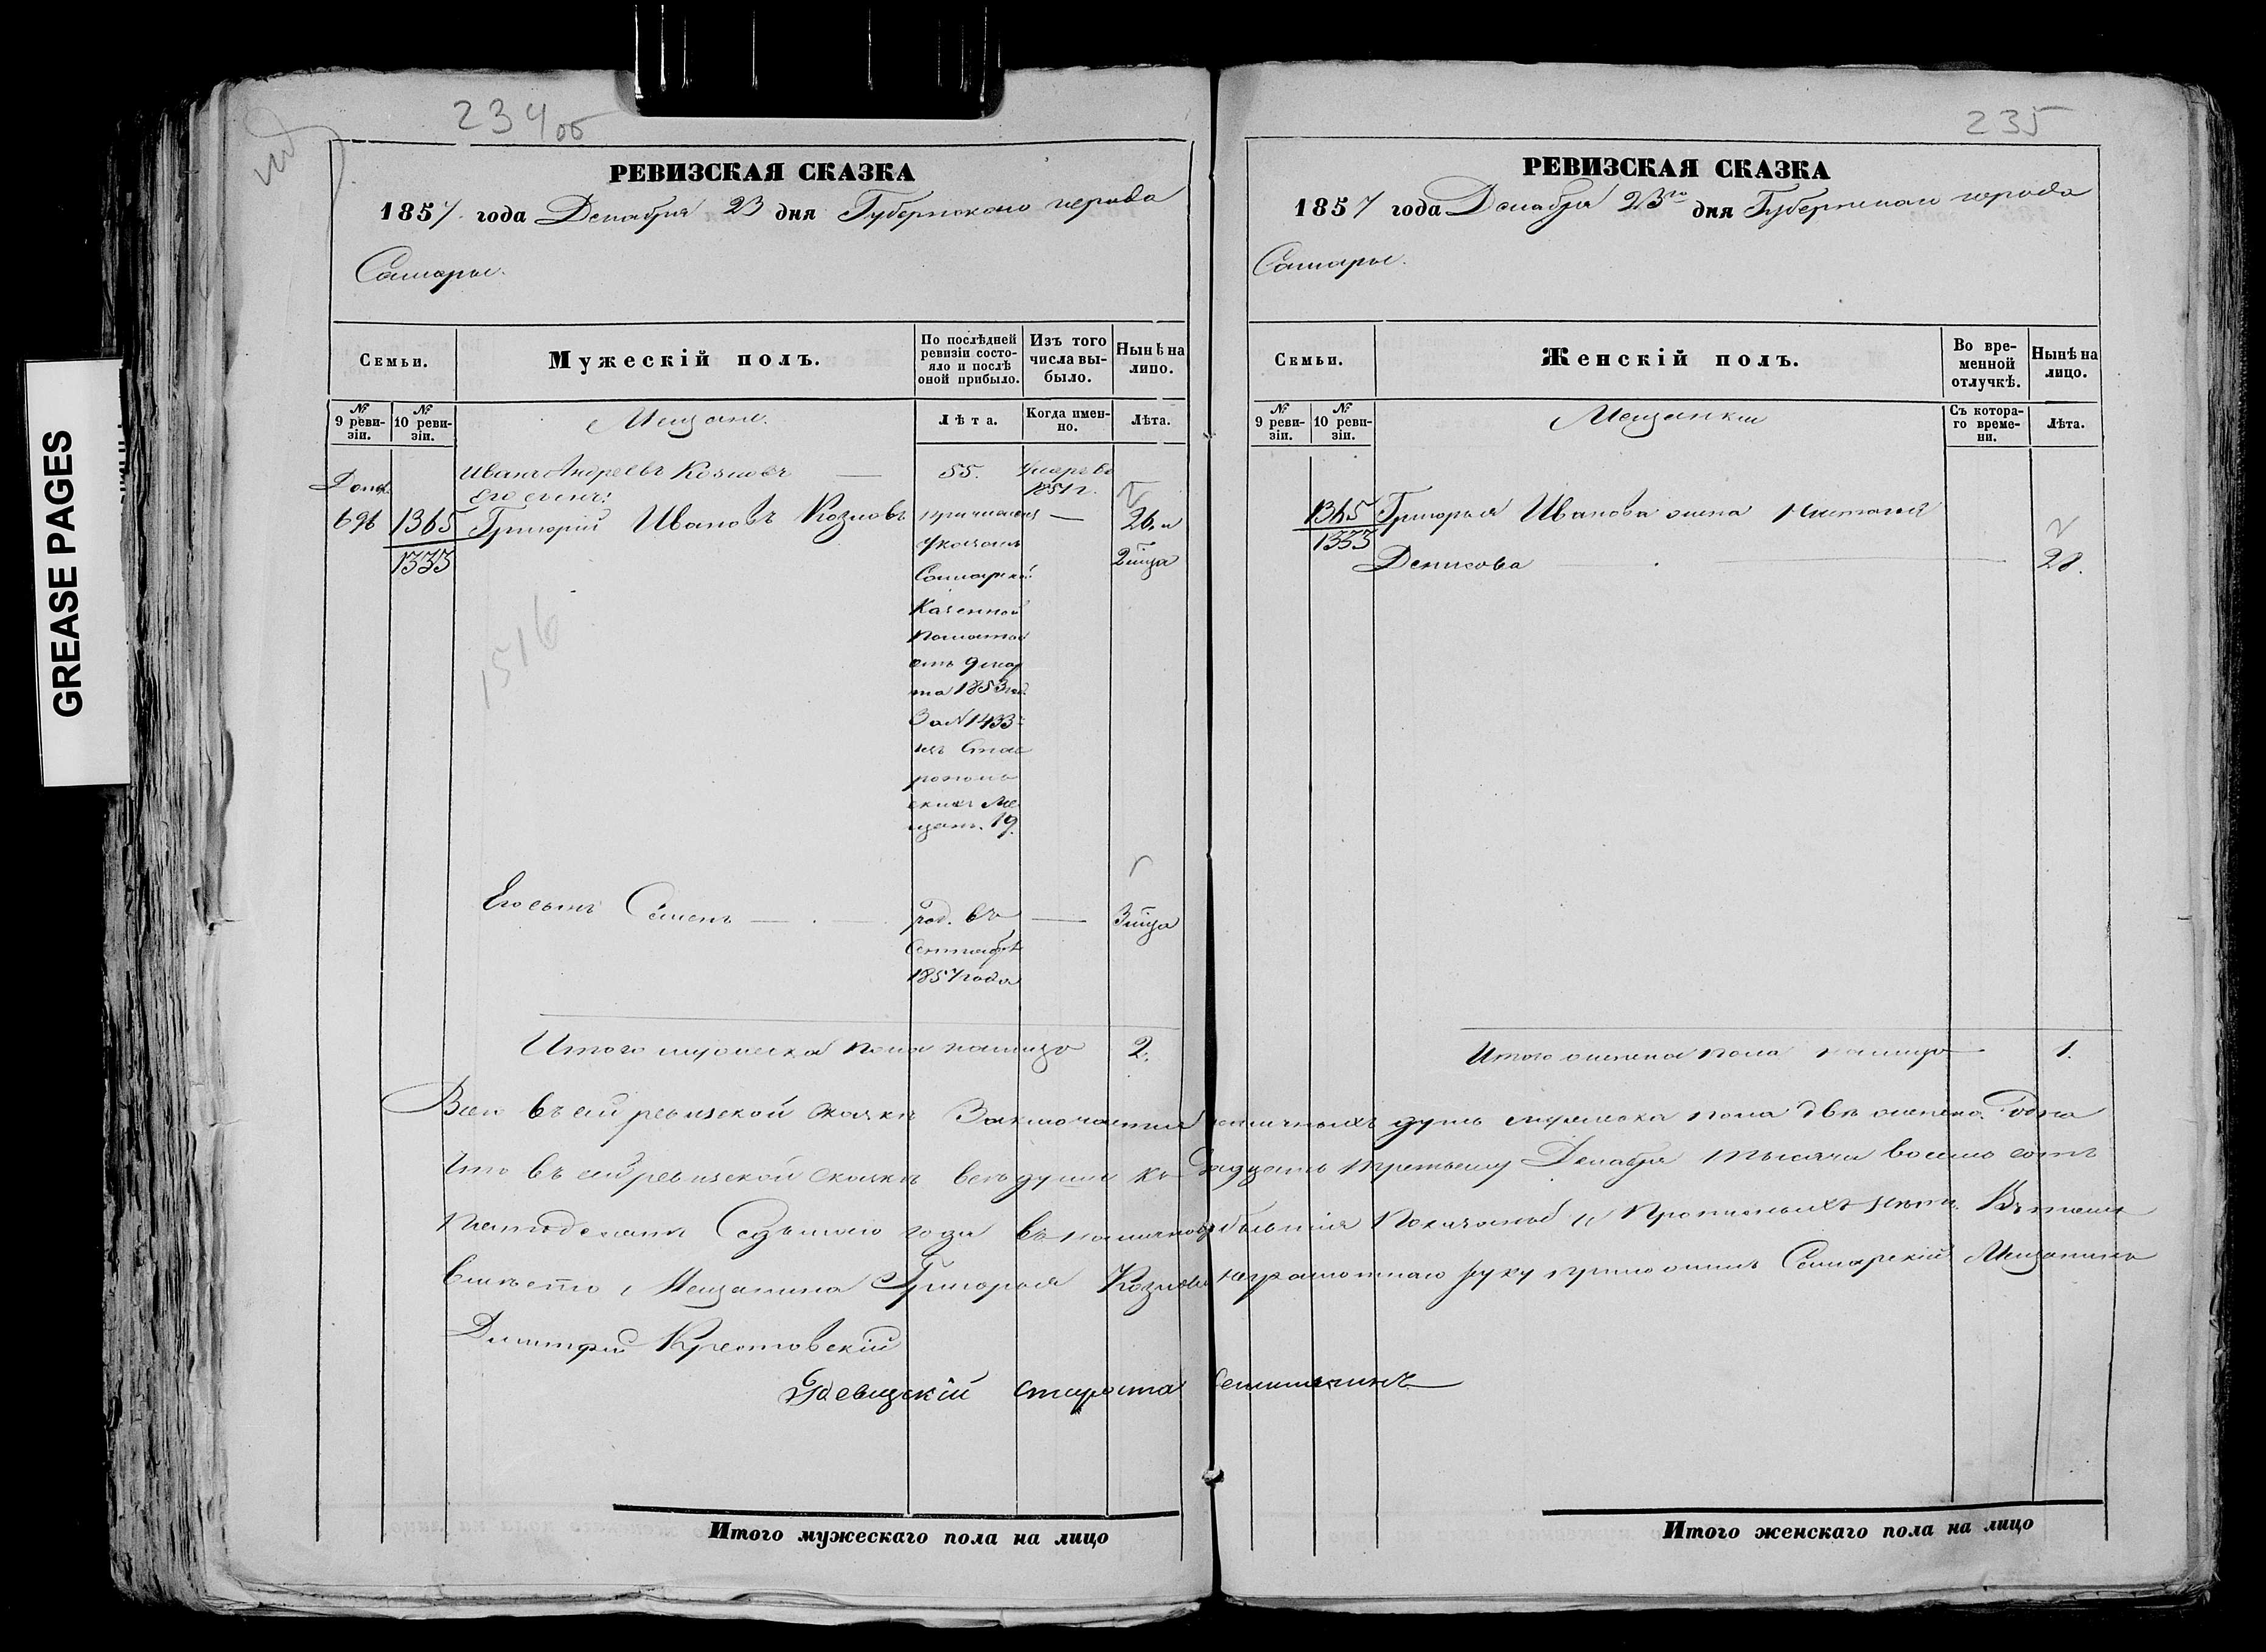 234об
РЕВИЗСКАЯ СКАЗКА
1857 года Декабря 23 дня Губернскаго города
Самары.
Семьи.
Мужескій полъ.
По послѣдней ревизіи состояло и послѣ оной прибыло.
Изъ того числа выбыло.
Нынѣ на лицо.
№ 9 ревизіи.
№ 10 ревизіи.
Мещане.
Лѣта.
Когда именно.
Лѣта.
Иванъ Андреевъ Козловъ — 55. Умеръ въ
Допол. Его сынъ: 1851 г.
696 1365 Григорій Ивановъ Козловъ причисленъ — 26. и
1333 указомъ 2 м͞ца
Самарской
Казенной
Палаты
отъ 9 мар
та 1853 год.
За № 1433
изъ Став
рополь
скихъ ме
щанъ. 19.
1516
Его сынъ Семенъ — род. въ — 3 м͞ца
Сентябрѣ
1857 года
Итого мужеска пола налицо 2.
Итого мужескаго пола на лицо
235
РЕВИЗСКАЯ СКАЗКА
1857 года Декабря 23го дня Губернскаго города
Самары.
Семьи.
Женскій полъ.
Во временной отлучкѣ.
Нынѣ на лицо.
№ 9 ревизіи.
№ 10 ревизіи.
Мещанки
Съ котораго времени.
Лѣта.
1365 Григорья Иванова жена Наталья
1333
Денисова — 28.
Итого женска пола налицо 1.
Всего въ сей ревизской сказкѣ Заключается наличныхъ душъ мужеска пола двѣ женско. Одна
Что въ сей ревизской сказкѣ всѣ души къ Двадцать третьему Декабря тысяча восемь сотъ
Пятьдесятъ Седьмаго года въ наличности бывшія Показаны и Прописныхъ нѣтъ. Въ томъ
вмѣсто Мещанина Григорья Козлова неграмотнаго руку приложилъ Самарскій Мещанинъ
Димитрій Крестовскій
староста
Итого женскаго пола на лицо
GREASE PAGES